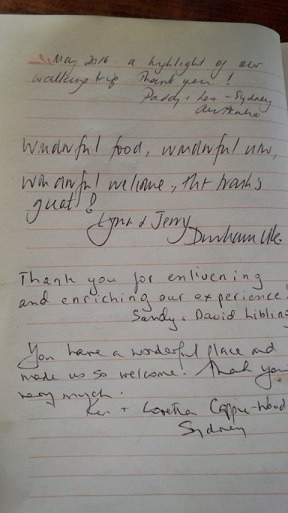 May 2016 a highlight of our
walking trip Thank you!
Paddy + Leo - Sydney
Australia
Wonderful food, wonderful view,
wonderful welcome, thr thanks
great!
Lynn & Jerry
Durham Uk.
Thank you for enlivening
and enriching our experience!
Sandy & David Libling
You have a wonderful place and
made us so welcome. Thank you
very much.
Ken + Loretta
Sydney